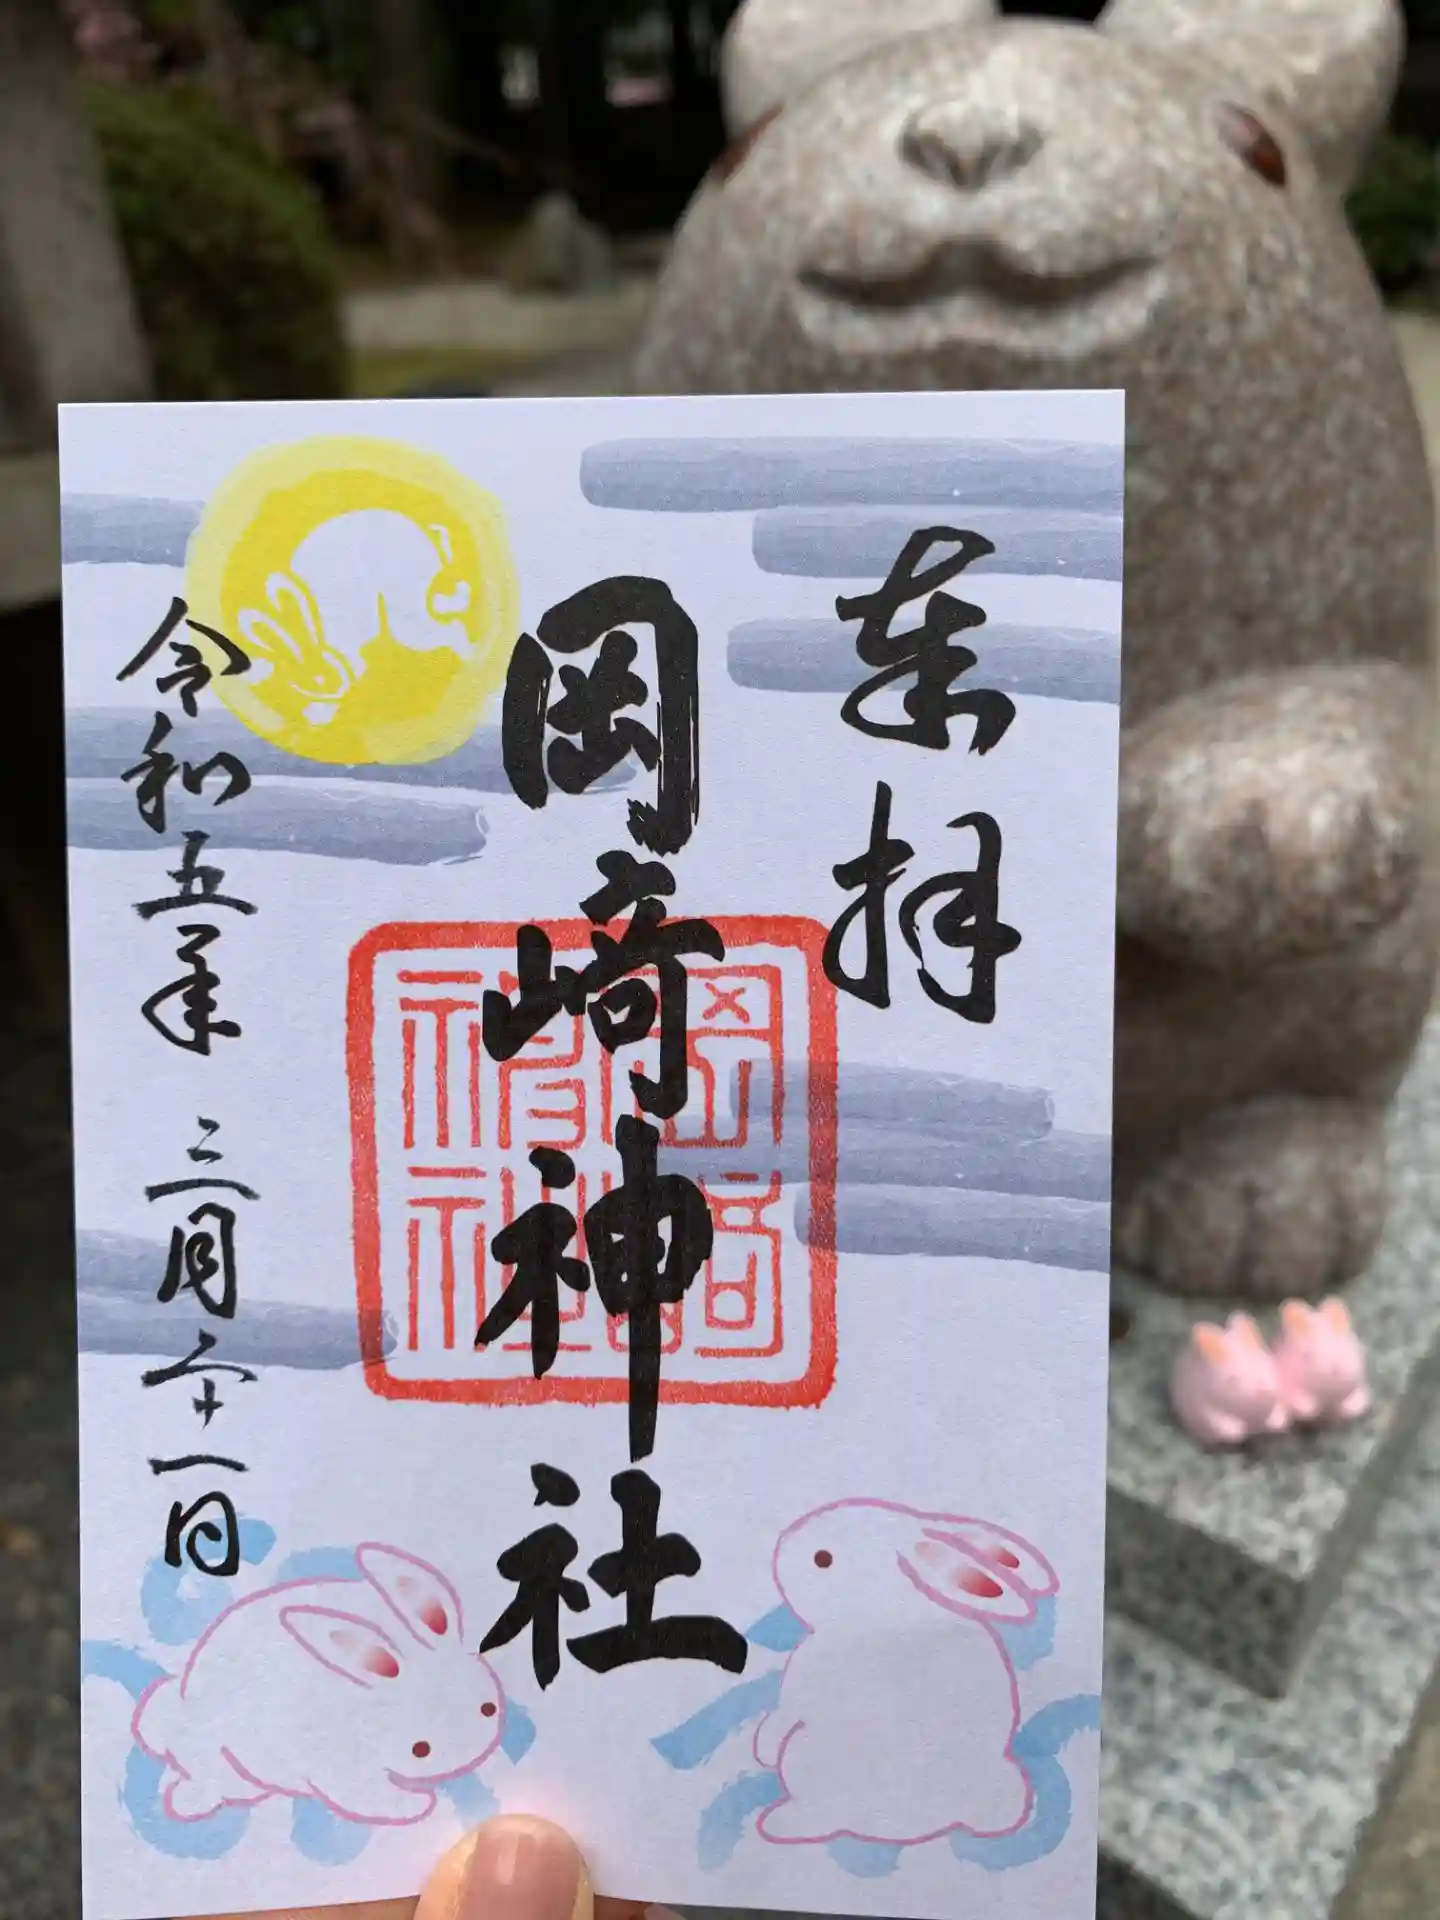 奉拝
岡崎神社
岡崎神社
令和五年 三月二十一日